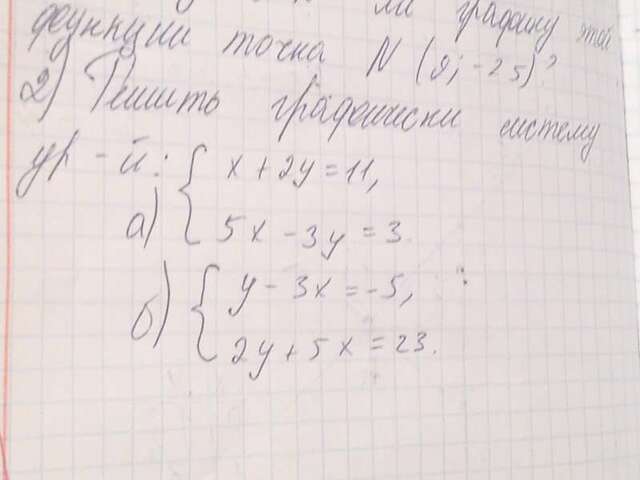 ли графику этой
функции точка N (9; -25)?
2) Решить графически систему
ур-й:
а) { x + 2y = 11,
5x - 3y = 3.
б) { y - 3x = -5,
2y + 5x = 23.